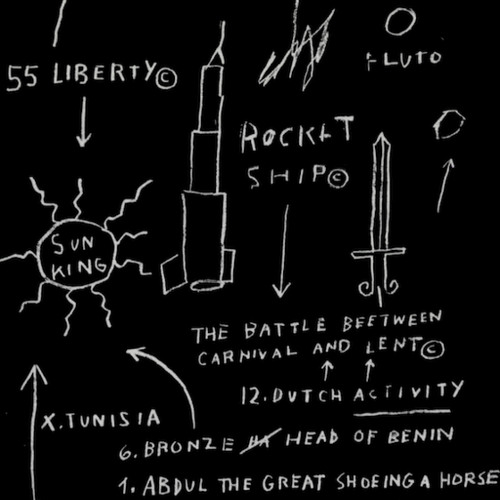 55 LIBERTY©
PLUTO
ROCKET
SHIP©
SUN
KING
THE BATTLE BEETWEEN
CARNIVAL AND LENT©
12. DUTCH ACTIVITY
X. TUNISIA
6. BRONZE HEAD OF BENIN
1. ABDUL THE GREAT SHOEING A HORSE